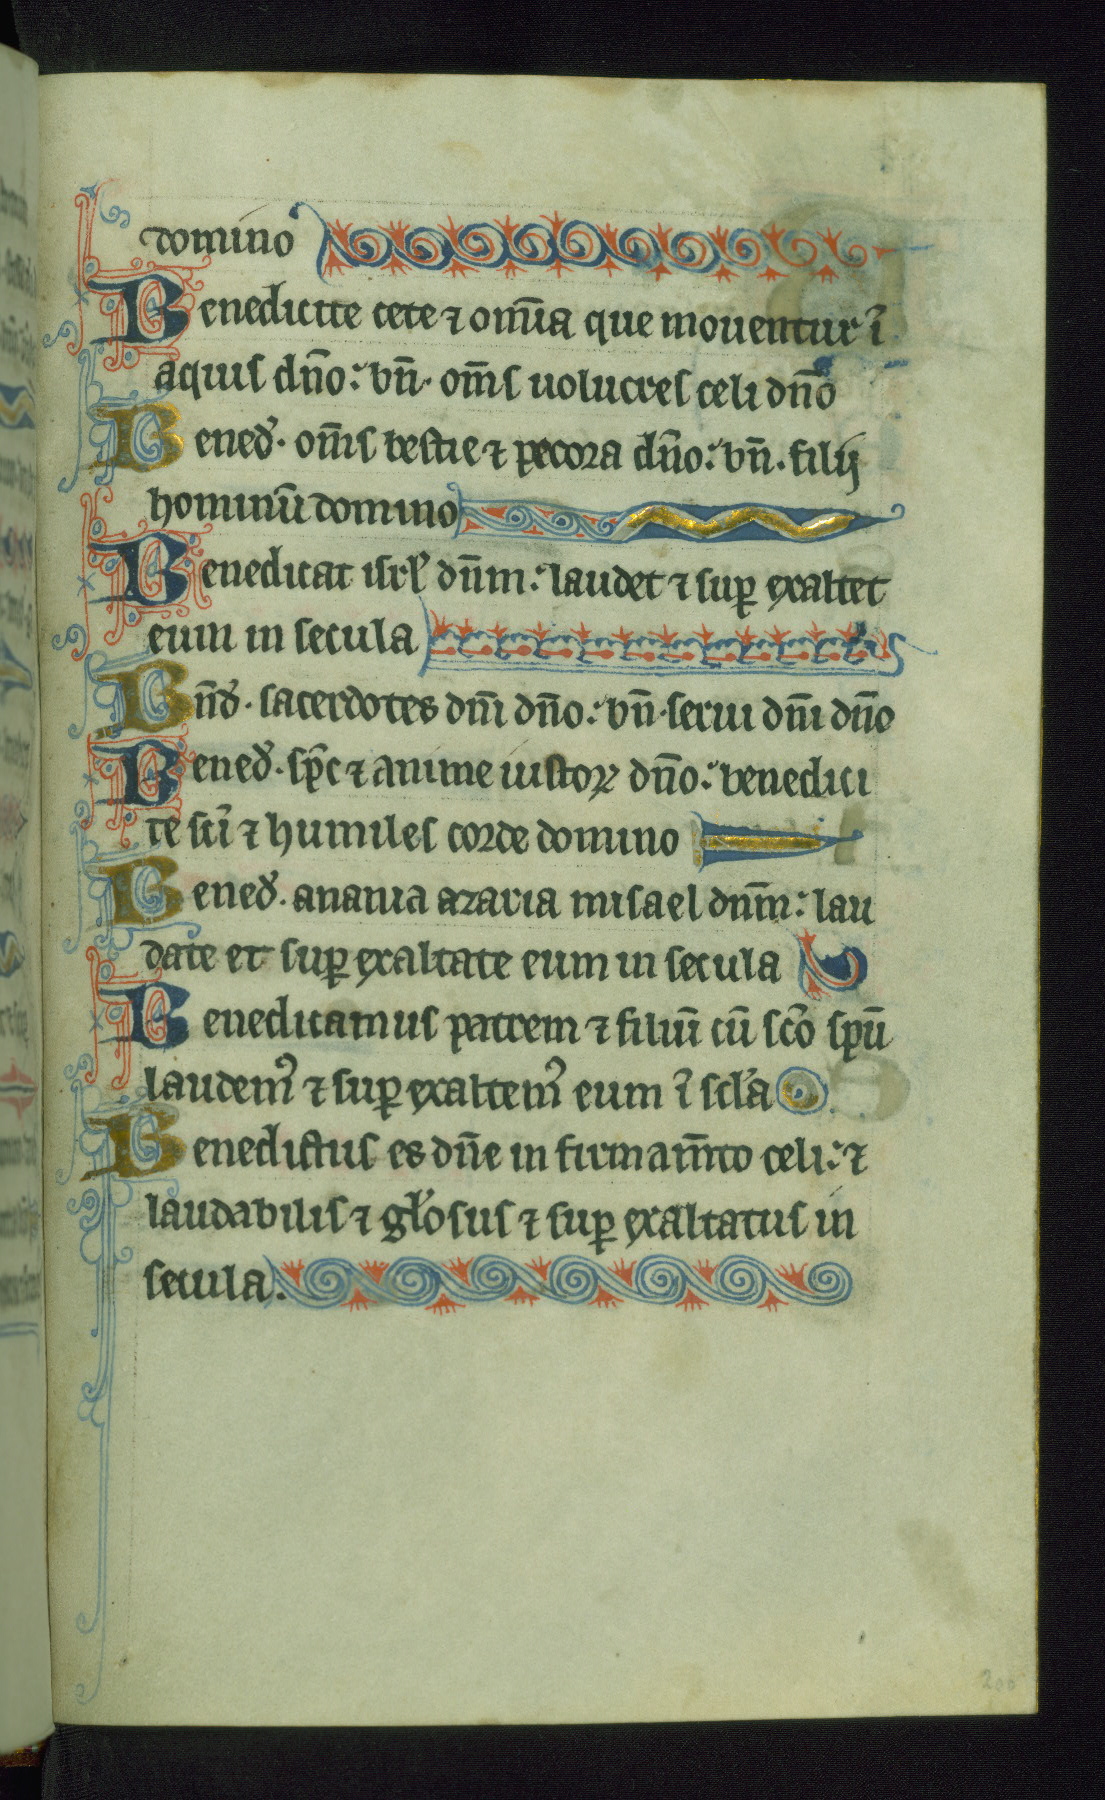 domino
Benedicite cete ⁊ om̄ia que mouentur ī
aquis dn̄o: bn̄. om̄s uolucres celi dn̄o
Bened̄. om̄s bestie ⁊ pecora dn̄o: bn̄. filij
hominū domino
Benedicat isrl̄ dn̄m: laudet ⁊ suꝑ exaltet
eum in secula
Bn̄d̄. sacerdotes dn̄i dn̄o: bn̄. serui dn̄i dn̄o
Bened̄. sp̄c ⁊ anime iustoꝝ dn̄o: benedici
te sc̄i ⁊ humiles corde domino
Bened̄. anania azaria misael dn̄m: lau
date et suꝑ exaltate eum in secula
Benedicamus patrem ⁊ filiū cū sc̄o sp̄u
laudemꝰ ⁊ suꝑ exaltemꝰ eum ī scl̄a
Benedictus es dn̄e in firmam̄to celi: ⁊
laudabilis ⁊ gl̄osus ⁊ suꝑ exaltatus in
secula.
200